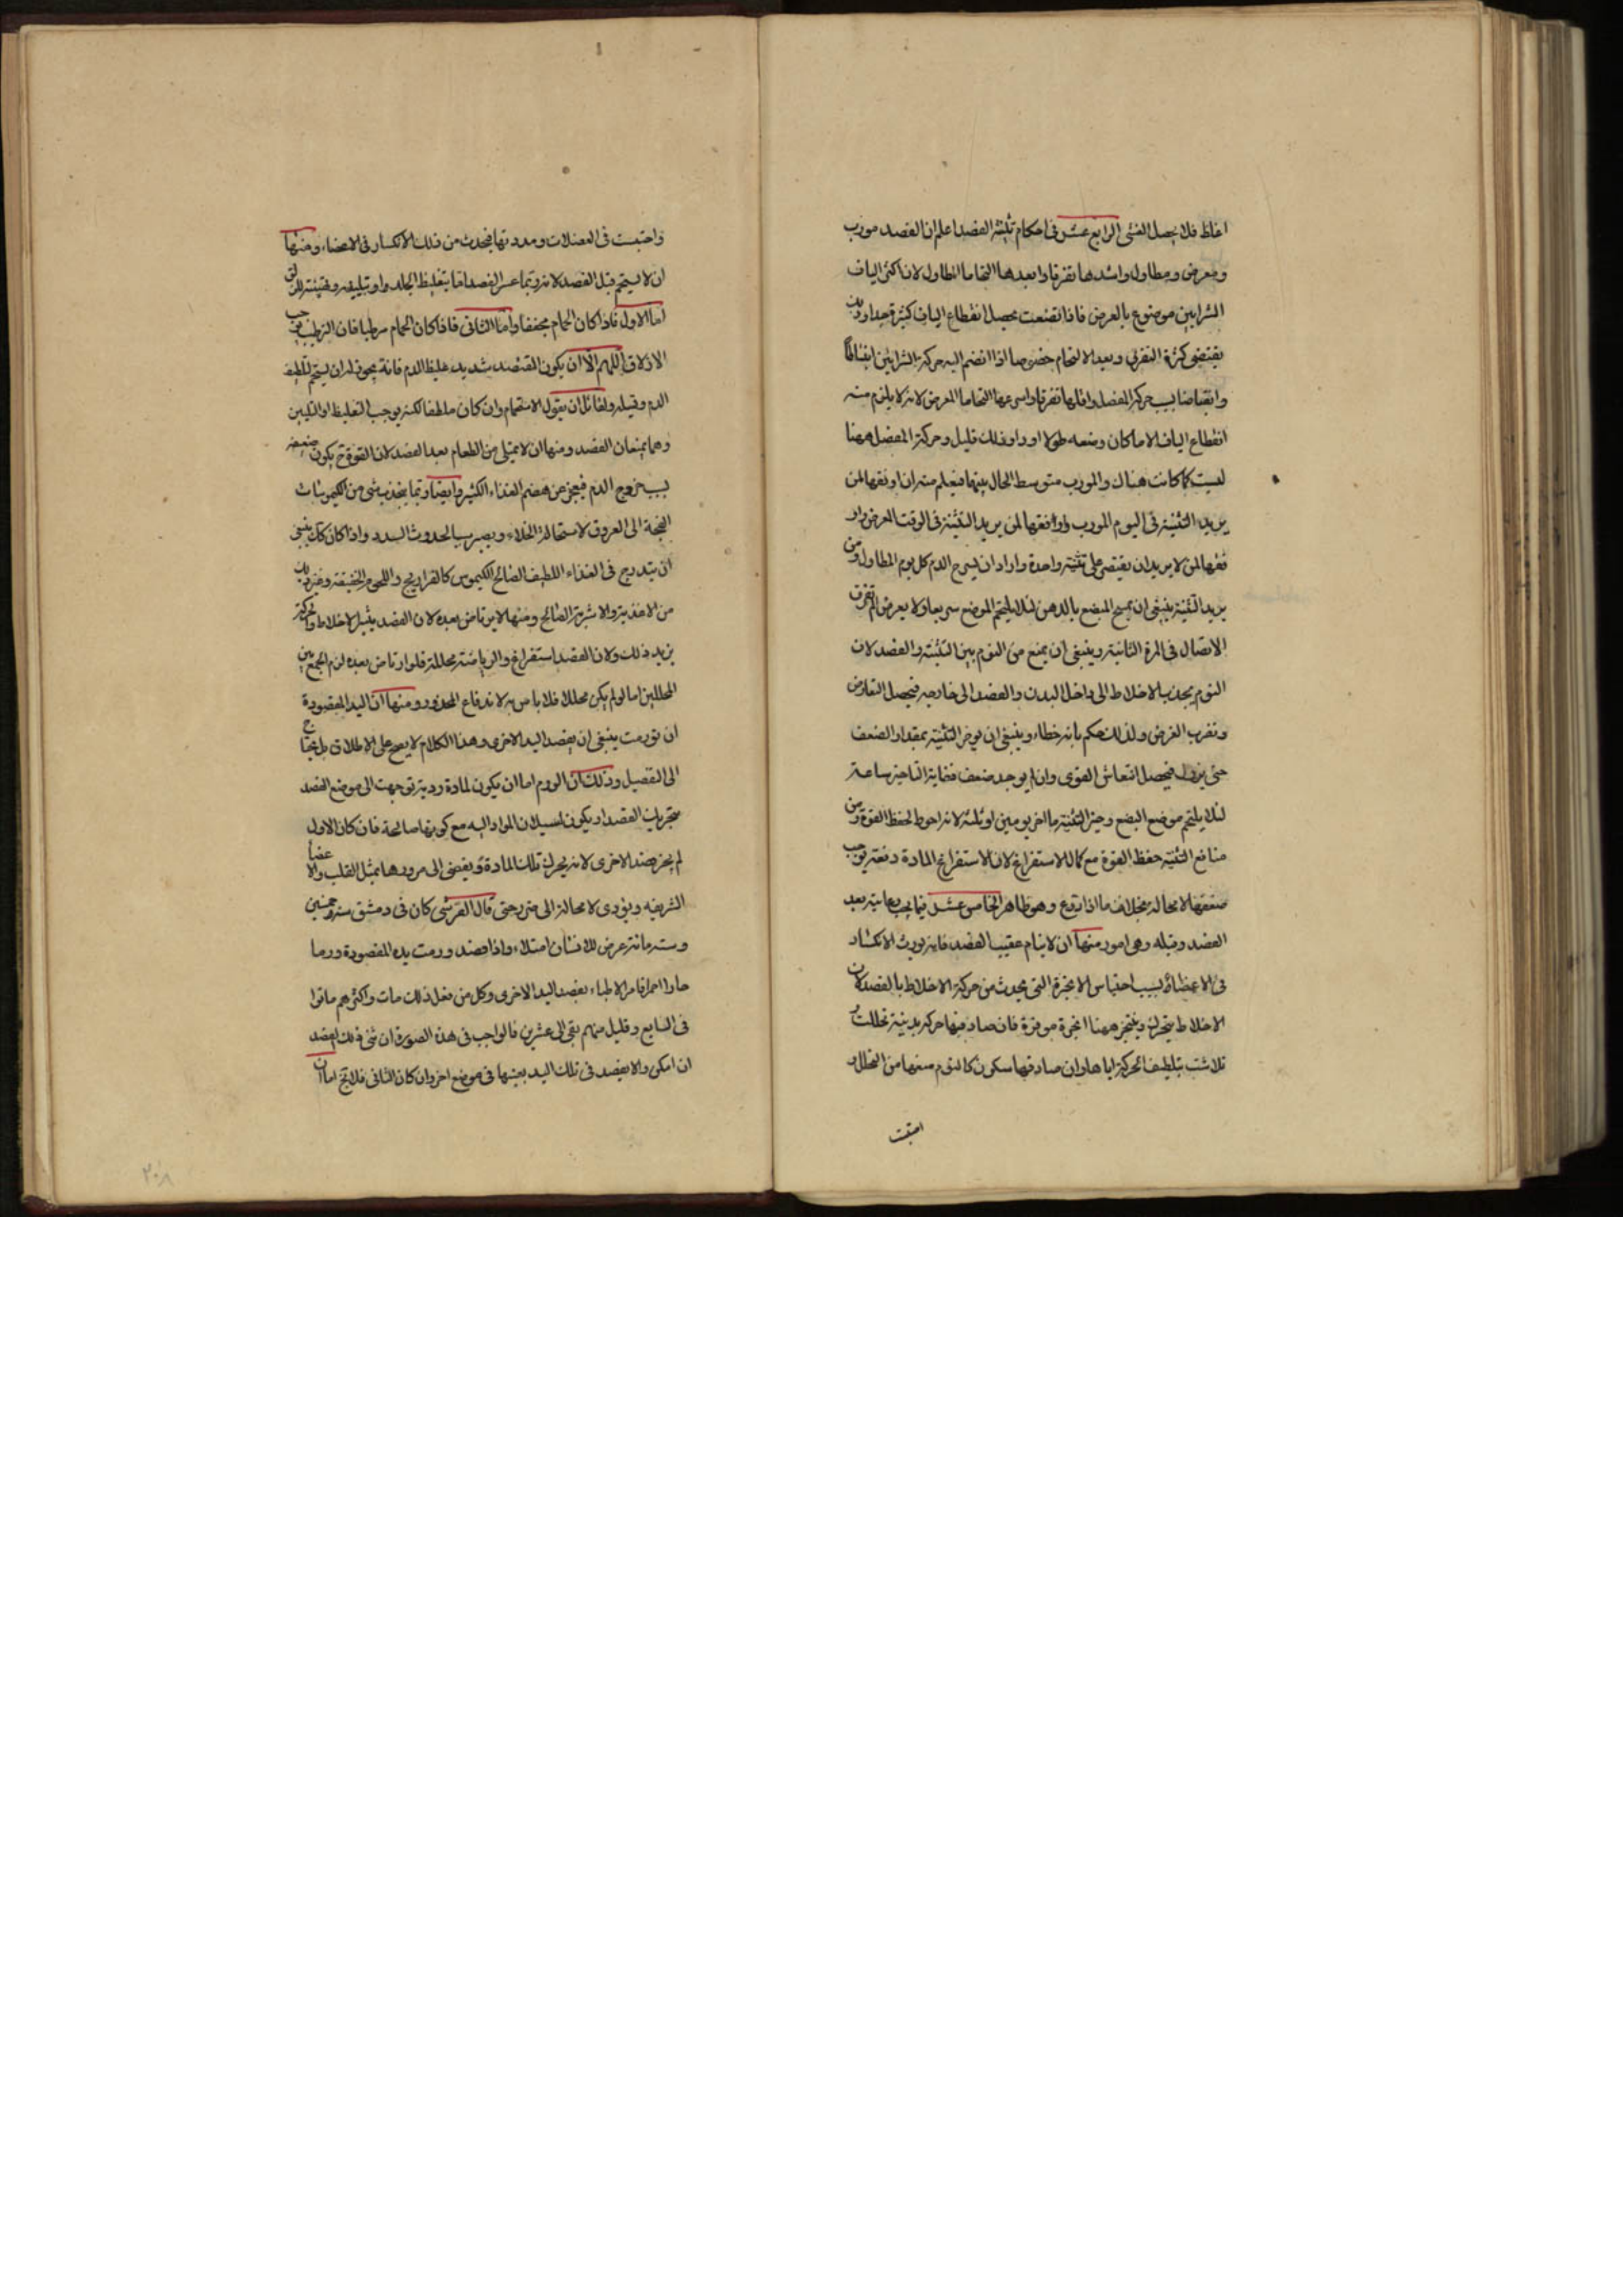 اغلظ فلا يحصل الغشى الرابع عشر فى احكام تثنية الفصد اعلم ان الفصد مورب
ومعرض ومطاول واشدها تفرقا وابعدها التحاما المطاول لان اكثر الياف
الشرايين موضوع بالعرض فاذا تضعت يحصل انقطاع الياف كثيرة جدا وذلك
يقتضى كثرة التفرق وبعد الالتحام خصوصا اذا انضم اليه حركة الشرايين انبساطا
وانقباضا بسبب حركة المفصل واقلها تفرقا واسرعها التحاما المعرض لانه لا يلزم منه
انقطاع الياف الا ما كان وضعه طولا او ذلك قليل وحركة المفصل ههنا
ليست كما كانت هناك والمورب متوسط الحال بينهما فيعلم منه ان اوفقها لمن
يريد التثنية فى اليوم المورب واوفقها لمن يريد التثنية فى الوقت العرض واو
فقها لمن لا يريد ان يقتصر على تثنية واحدة واراد ان يسرح الدم كل يوم المطاول ومن
يريد التثنية ينبغى ان يمسح المبضع بالدهن لئلا يلتحم الموضع سريعا ولا يعرض الم تفرق
الاتصال فى المرة الثانية وينبغى ان يمنع من النوم بين التثنية والفصد لان
النوم يجذب الاخلاط الى داخل البدن والفصد الى خارجه فيحصل التعارض
الغرض ولذلك حكم بانه خطاء وينبغى ان يوخر التثنية بمقدار الضعف
حتى يزول فيحصل انتعاش القوى وان لم يوجد ضعف فغاية التاخير ساعة
لئلا يلتحم موضع البضع وخير التثنية ما اخر يومين او ثلثة لانه احوط لحفظ القوة ومن
منافع التثنية حفظ القوة مع كمال الاستفراغ لان الاستفراغ المادة دفعة يوجب
ضعفها لا محالة بخلاف ما اذا وهو ظاهر الخامس عشر فيما يجب رعايته بعد
الفصد وقبله وهى امور منها ان لا ينام عقيب الفصد فانه يورث الانكسار
فى الاعضاء بسبب احتباس الابخرة التى يحدث من حركة الاخلاط بالفصد لان
الاخلاط يتحرك ويتبخر ههنا ابخرة موفرة فان صادفها حركة بدنية تحللت و
تلاشت بتلطيف الحركة اياها وان صادفها سكون كالنوم منعها من التحلل و
احتقنت
واحتبست فى العضلات ومددتها فيحدث من ذلك الانكسار فى الاعضاء ومنها
ان لا يستحم قبل الفصد لانه ربما عسر الفصد اما بتغليظ الجلد او بتليينه وتهيئته للزلق
اما الاول فاذا كان الحمام مجففا واما الثانى فاذا كان الحمام مرطبا فان الترطيب يوجب
الازلاق اللهم الا ان يكون المفتصد شديد غليظ الدم فانه يجوز له ان يستحم لتلطيف
الدم وقيله ولقائل ان يقول الاستحمام وان كان ملطفا لكنه يوجب التغليظ او التليين
وهما يمنعان الفصد ومنها ان لا يمتلى من الطعام بعد الفصد لان القوة ح يكون ضعيفة
بسبب خروج الدم فيعجز من هضم الغذاء الكثير وايضا ربما يجذب شى من الكيموسات
الفجة الى العروق لاستحالة الخلاء ويصير سببا لحدوث السدد واذا كان كك ينبغى
ان يتدرج فى الغذاء اللطيف الصالح الكيموس كالفراريج واللحوم الخفيفة وغير ذلك
من الاغذية والاشربة الصالح ومنها لا يرتاض بعده لان الفصد يثير الاخلاط والحركة
يزيد ذلك ولان الفصد استفراغ والرياضة محللة فلو ارتاض بعده لزم الجمع بين
المحللين اما لو لم يكن محللا فلا باس به لاندفاع المحذور ومنها ان اليد المفصودة
ان تورمت ينبغى ان يفصد اليد الاخرى وهذا الكلام لا يصح على الاطلاق بل يحتاج
الى التفصيل وذلك ان الورم اما ان يكون لمادة ردية توجهت الى موضع الفصد
الفصد او يكون لسيلان المواد اليه مع كونها صالحة فان كان الاول
لم يجز فصد الاخرى لانه يحرك تلك المادة ويفضى الى مرورها بمثل القلب والاعضا
الشريفه ويؤدى لا محالة الى حتى قال القرشى كان فى دمشق سنة خمسين
وستمائة عرض للانسان امتلاء واذا فصد ورمت يده المفصودة ورما
حارا احمر فامر الاطباء بفصد اليد الاخرى وكل من فعل ذلك مات واكثرهم ماتوا
فى السابع وقليل منهم بقى الى عشرين فالواجب فى هذه الصورة ان ثنى ذلك الفصد
ان امكن والا يفصد فى تلك اليد بعينها فى موضع اخر وان كان الثانى فلا يخ اما ان
٢٠٨